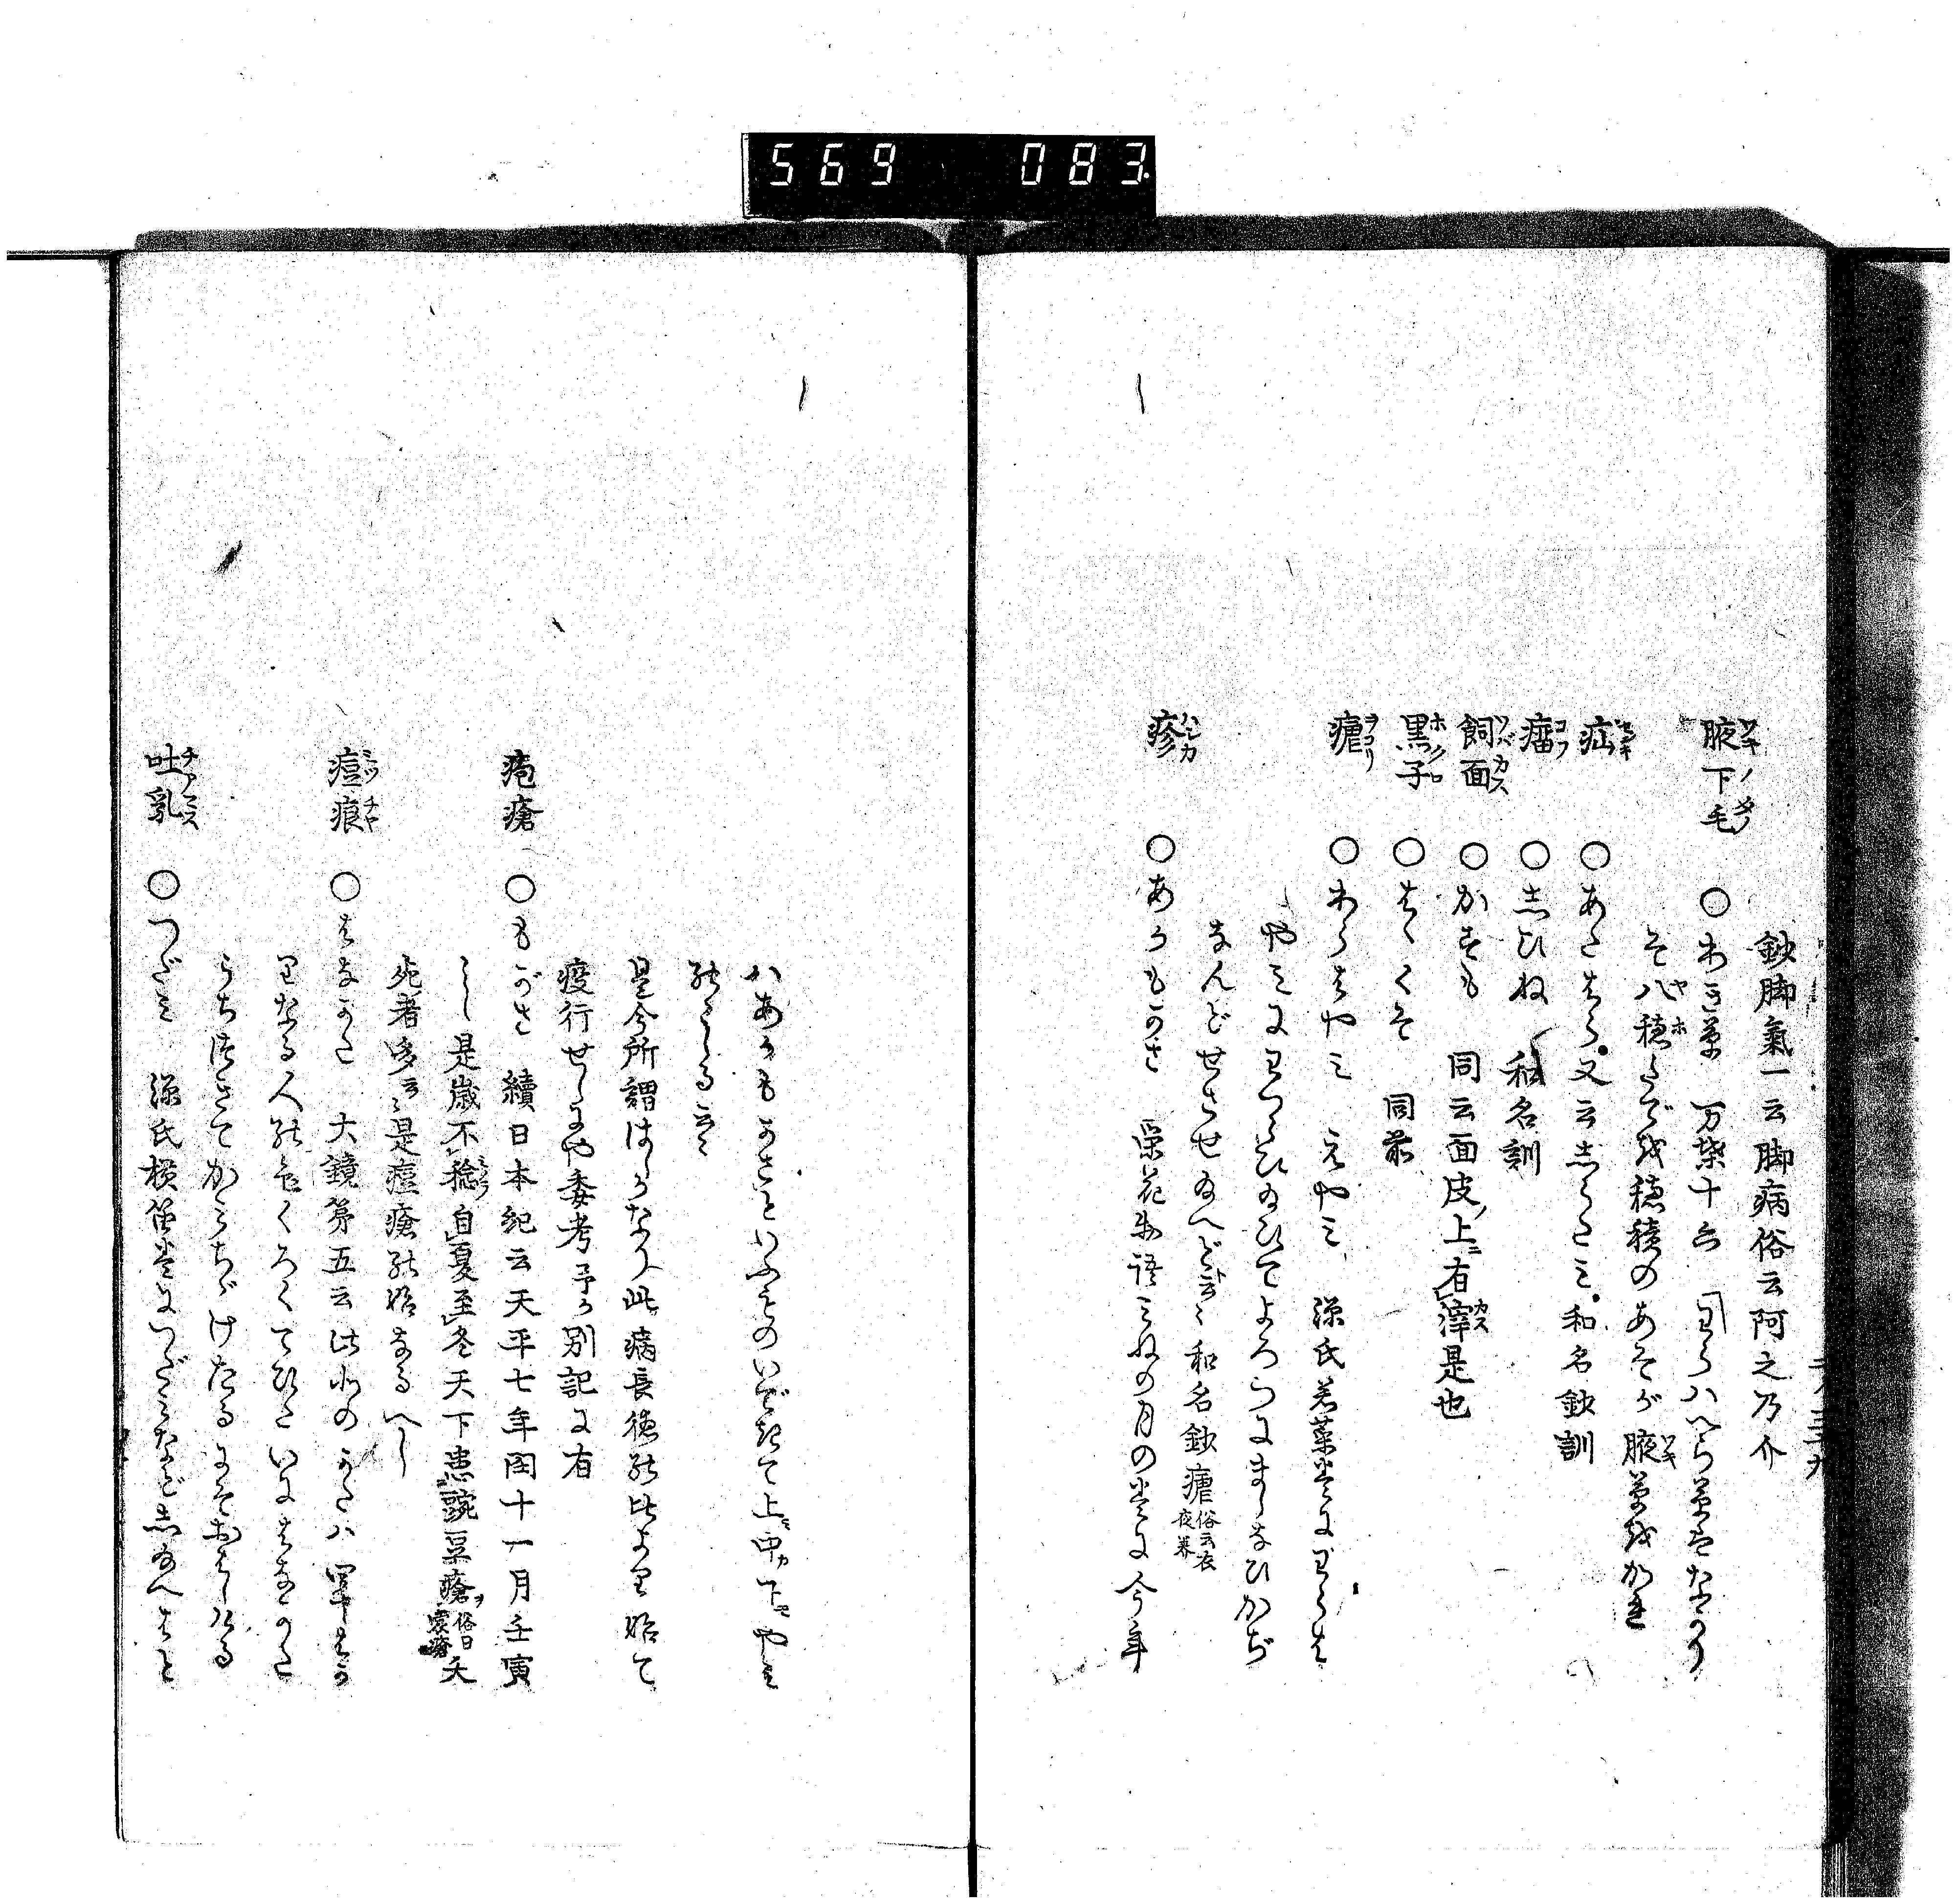 569 083
鈔脚氣一云脚病俗云阿之乃介
腋下毛 ○わき草 万葉十六 わらハへら草はなかり
そ八穂たでを穂積のあそが腋草をかれ
疝 ○あたはら又云しらたみ和名鈔訓
瘤 ○しひね 和名訓
飼面 ○かすも 同云面皮ノ上ニ有滓是也
黒子 ○はゝくそ 同前
瘧 ○わらはやみ えやみ 源氏若菜巻にわらは
やみにわづらひ給ひてよろづにまじなひかぢ
なんどせさせ給へど云々 和名鈔瘧俗云衣夜美
疹 ○あかもかさ 栄花物語みねの月の巻に今年
ハあかもかさといふものいできて上中下やみ
のゝしる云々
是今所謂はしかなり此病長徳の比より始て
疫行せしにや委考予が別記に有
疱瘡 ○もがさ 續日本紀云天平七年閏十一月壬寅
是歳不稔自夏至冬天下患豌豆瘡俗曰裳瘡夭
死者多云々是痘瘡の始なるへし
痘痕 ○はなかた 大鏡第五云
りなる人の
うち
吐乳 ○つだみ 源氏横笛巻につだみなどし給へはと